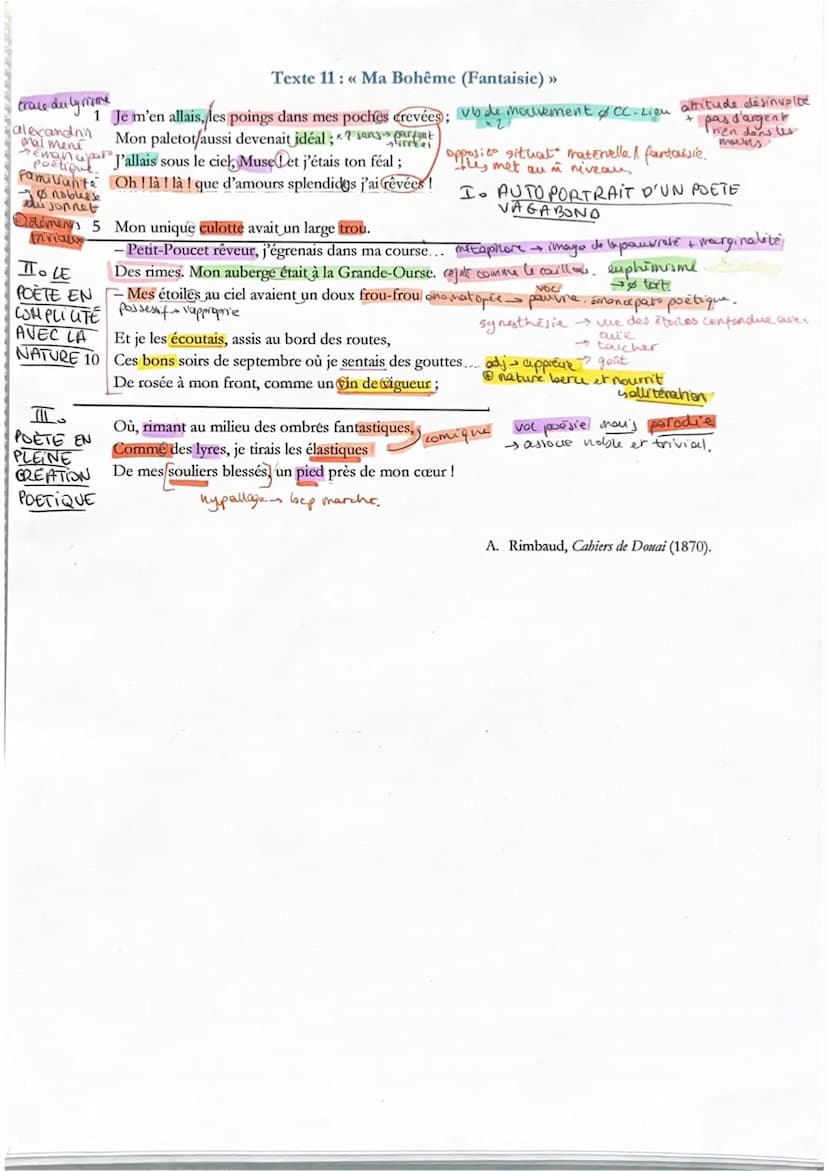 Texte 11 : « Ma Bohême (Fantaisie) »
trace du lyrisme
1 Je m'en allais, les poings dans mes poches crevées ; vb de mouvement ø CC. Lieu
x2
attitude désinvolte
+ pas d'argent
rien dans les
mains
alexandrin
mal mené
→ émancipat°
poétique.
Mon paletot aussi devenait idéal ; x 2 sens → parfait
→ irréel
J'allais sous le ciel, Muse ! et j'étais ton féal ;
opposit° situat° matérielle / fantaisie.
↳ les met au m̂ niveau
Familiarité
→ ø noblesse
du sonnet
Oh ! là ! là ! que d'amours splendides j'ai rêvées !
I. AUTOPORTRAIT D'UN POETE
VAGABOND
éléments
triviaux
5 Mon unique culotte avait un large trou.
– Petit-Poucet rêveur, j'égrenais dans ma course… métaphore → image de la pauvreté + marginalité
Des rimes. Mon auberge était à la Grande-Ourse. rejet comme le caillou. euphémisme
→ ø toit
– Mes étoiles au ciel avaient un doux frou-frou onomatopée → pauvre. émancipat° poétique.
voc
possessif → s'approprie
synesthésie → vue des étoiles confondue avec
ouïe
→ toucher
→ goût
II. LE
POÈTE EN
COMPLICITÉ
AVEC LA
NATURE
Et je les écoutais, assis au bord des routes,
10 Ces bons soirs de septembre où je sentais des gouttes… adj → apprécie
⊕ nature berce et nourrit
↳ allitération
De rosée à mon front, comme un vin de vigueur ;
III.
POÈTE EN
PLEINE
CREATION
POETIQUE
Où, rimant au milieu des ombres fantastiques,
comique
voc poésie mais parodie
→ associe noble et trivial.
Comme des lyres, je tirais les élastiques
De mes souliers blessés, un pied près de mon cœur !
hypallage → bcp marché.
A. Rimbaud, Cahiers de Douai (1870).